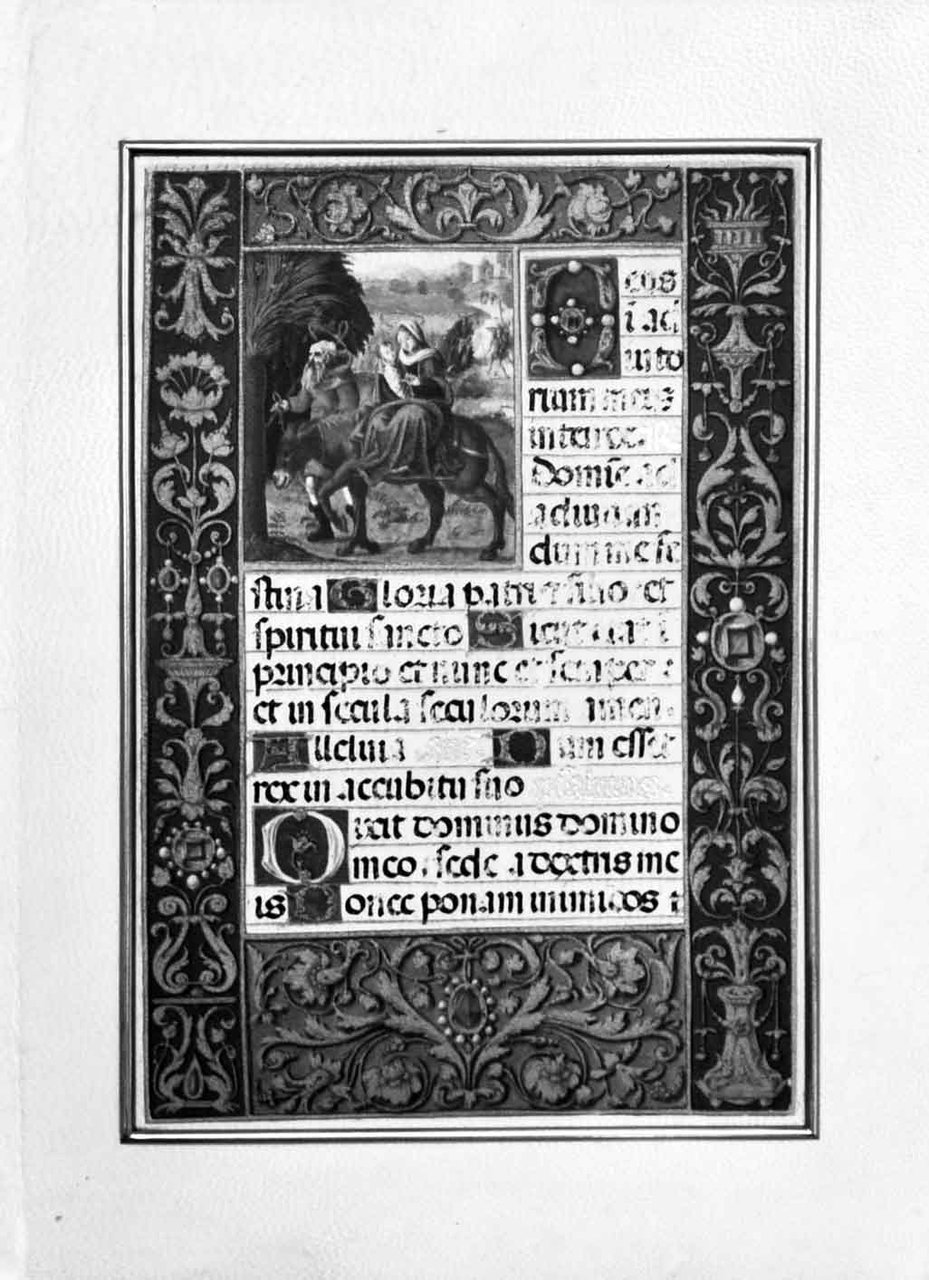 Deus
ī ad
iuto
rium meū
intende.
Domīe ad
adiuuan
dum me fe
stina Gloria patri et filio et
spiritui sancto Sicut erat ī
principio et nunc et semper :
et in secula seculorum amen.
Alleluia Dum esset
rex in accubitu suo
Dixit dominus domino
meo . sede a dextris me
is Donec ponam inimicos t